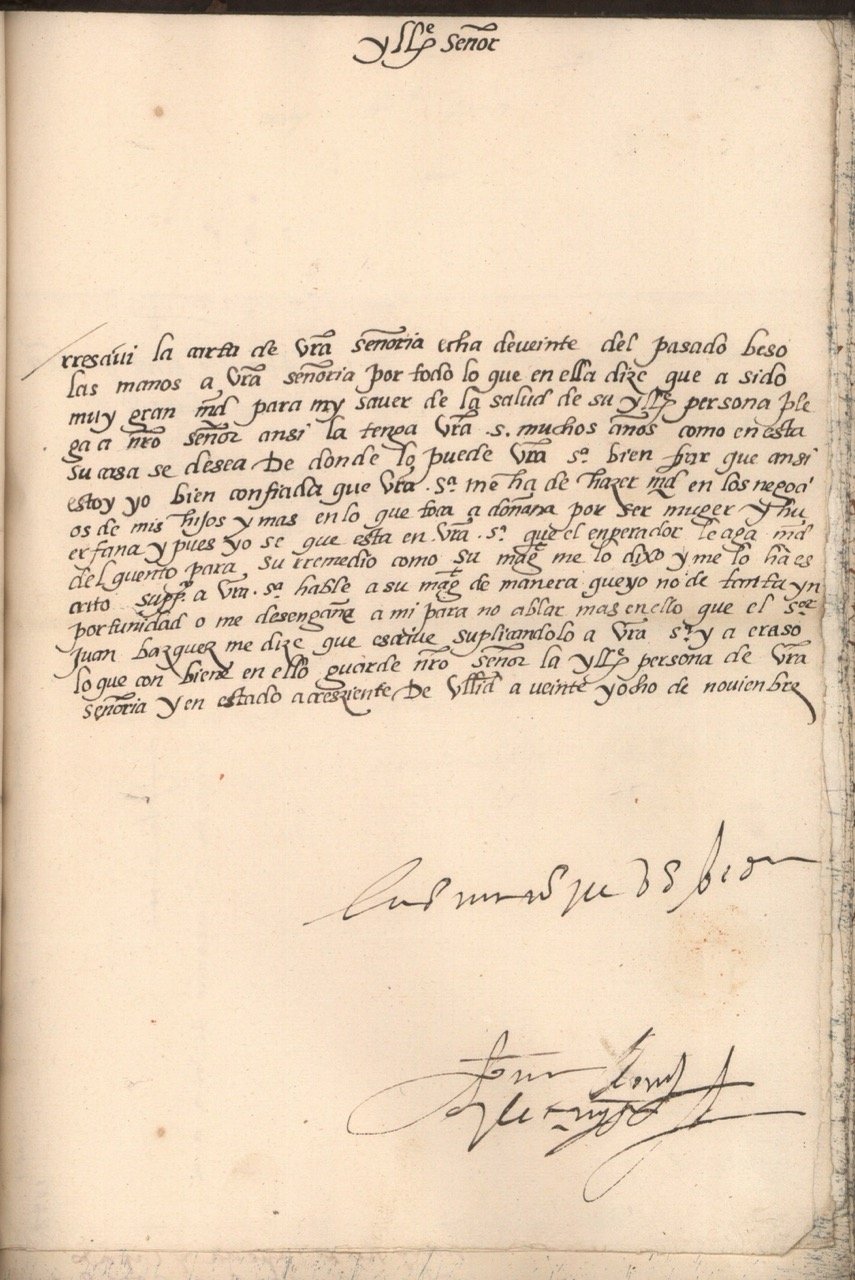 yllᵉ Señor
rresçiui la carta de vr̃a señoria echa de veinte del pasado beso
las manos a vr̃a señoria por todo lo que en ella dize que a sido
muy gran md̃ para my saver de la salud de su yllᵉ persona ple
ga a nr̃o señor ansi la tenga vr̃a .s. muchos años como en esta
su casa se desea De donde lo puede vr̃a sᵃ bien fiar que ansi
estoy yo bien confiada que vr̃a .sᵃ me ha de hazer md̃ en los negoçi
os de mis hijos y mas en lo que toca a doñana por ser muger y hu
erfana y pues yo se que esta en vr̃a .sᵃ que el enperador le aga md̃
del quento para su rremedio como su magᵗ me lo dixo y me lo ha es
crito suppᶜᵒ a vr̃a .sᵃ hable a su magᵗ de manera que yo no de tanta yn
portunidad o me desengañe a mi para no ablar mas en ello que el sᵒʳ
Juan bazquez me dize que escrive suplicandolo a vr̃a sᵃ y a eraso
lo que con biene en ello guarde nr̃o señor la yllᵉ persona de vr̃a
señoria y en estado acresziente De vllid̃ a veinte y ocho de noviembre